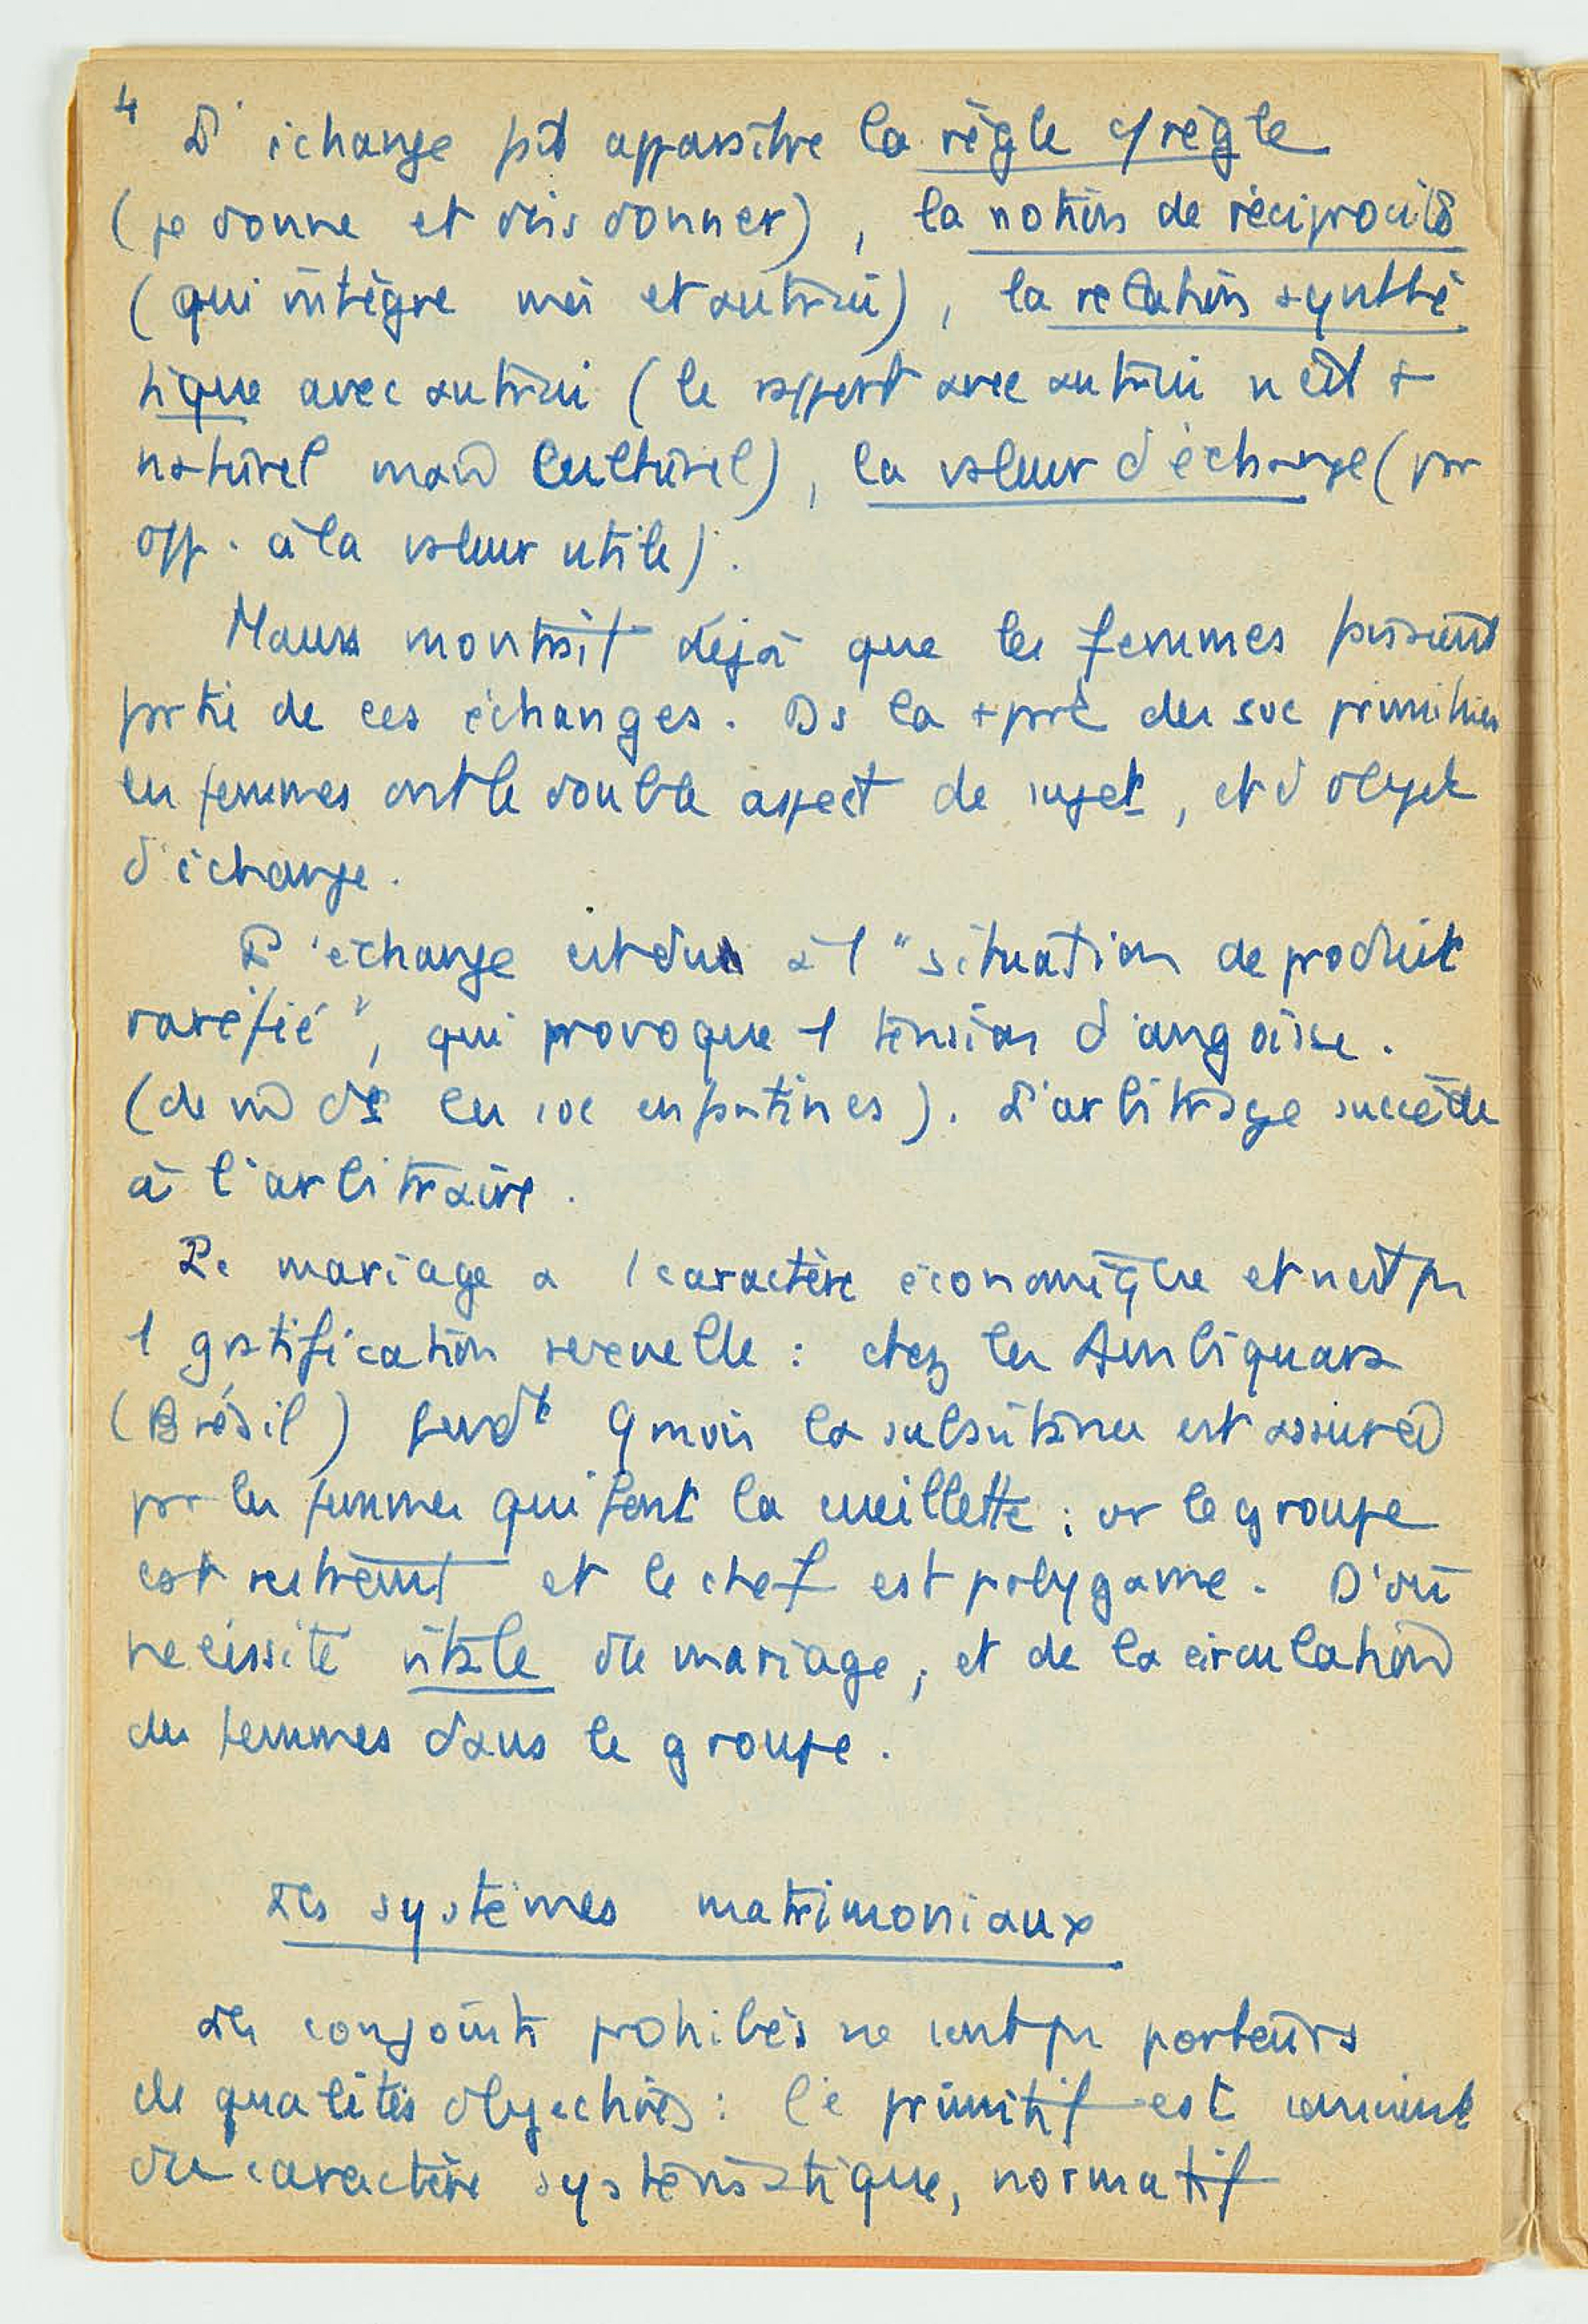 4
L'échange fait apparaître la règle c/ règle
(je donne et dois donner), la notion de réciprocité
(qui intègre moi et autrui), la relation synthé
tique avec autrui (le rapport avec autrui n'est +
naturel mais culturel), la valeur d'échange (par
opp. à la valeur utile).
Mauss montrait déjà que les femmes faisaient
partie de ces échanges. Ds la +part des soc primitives
les femmes ont le double aspect de sujet, et d'objet
d'échange.
L'échange est du à l' "situation de produit
raréfié", qui provoque 1 tension d'angoisse.
(de ds les soc enfantines). L'arbitrage succède
à l'arbitraire.
Le mariage a 1 caractère économique et n'est pas
1 gratification sexuelle : chez les
(Brésil) pendt 9 mois la subsistance est assurée
par les femmes qui font la cueillette : or le groupe
est restreint et le chef est polygame. D'où
nécessité vitale du mariage, et de la circulation
des femmes dans le groupe.
Les systèmes matrimoniaux
Les conjoints prohibés ne sont pas porteurs
de qualités objectives : le primitif est conscient
du caractère systématique, normatif